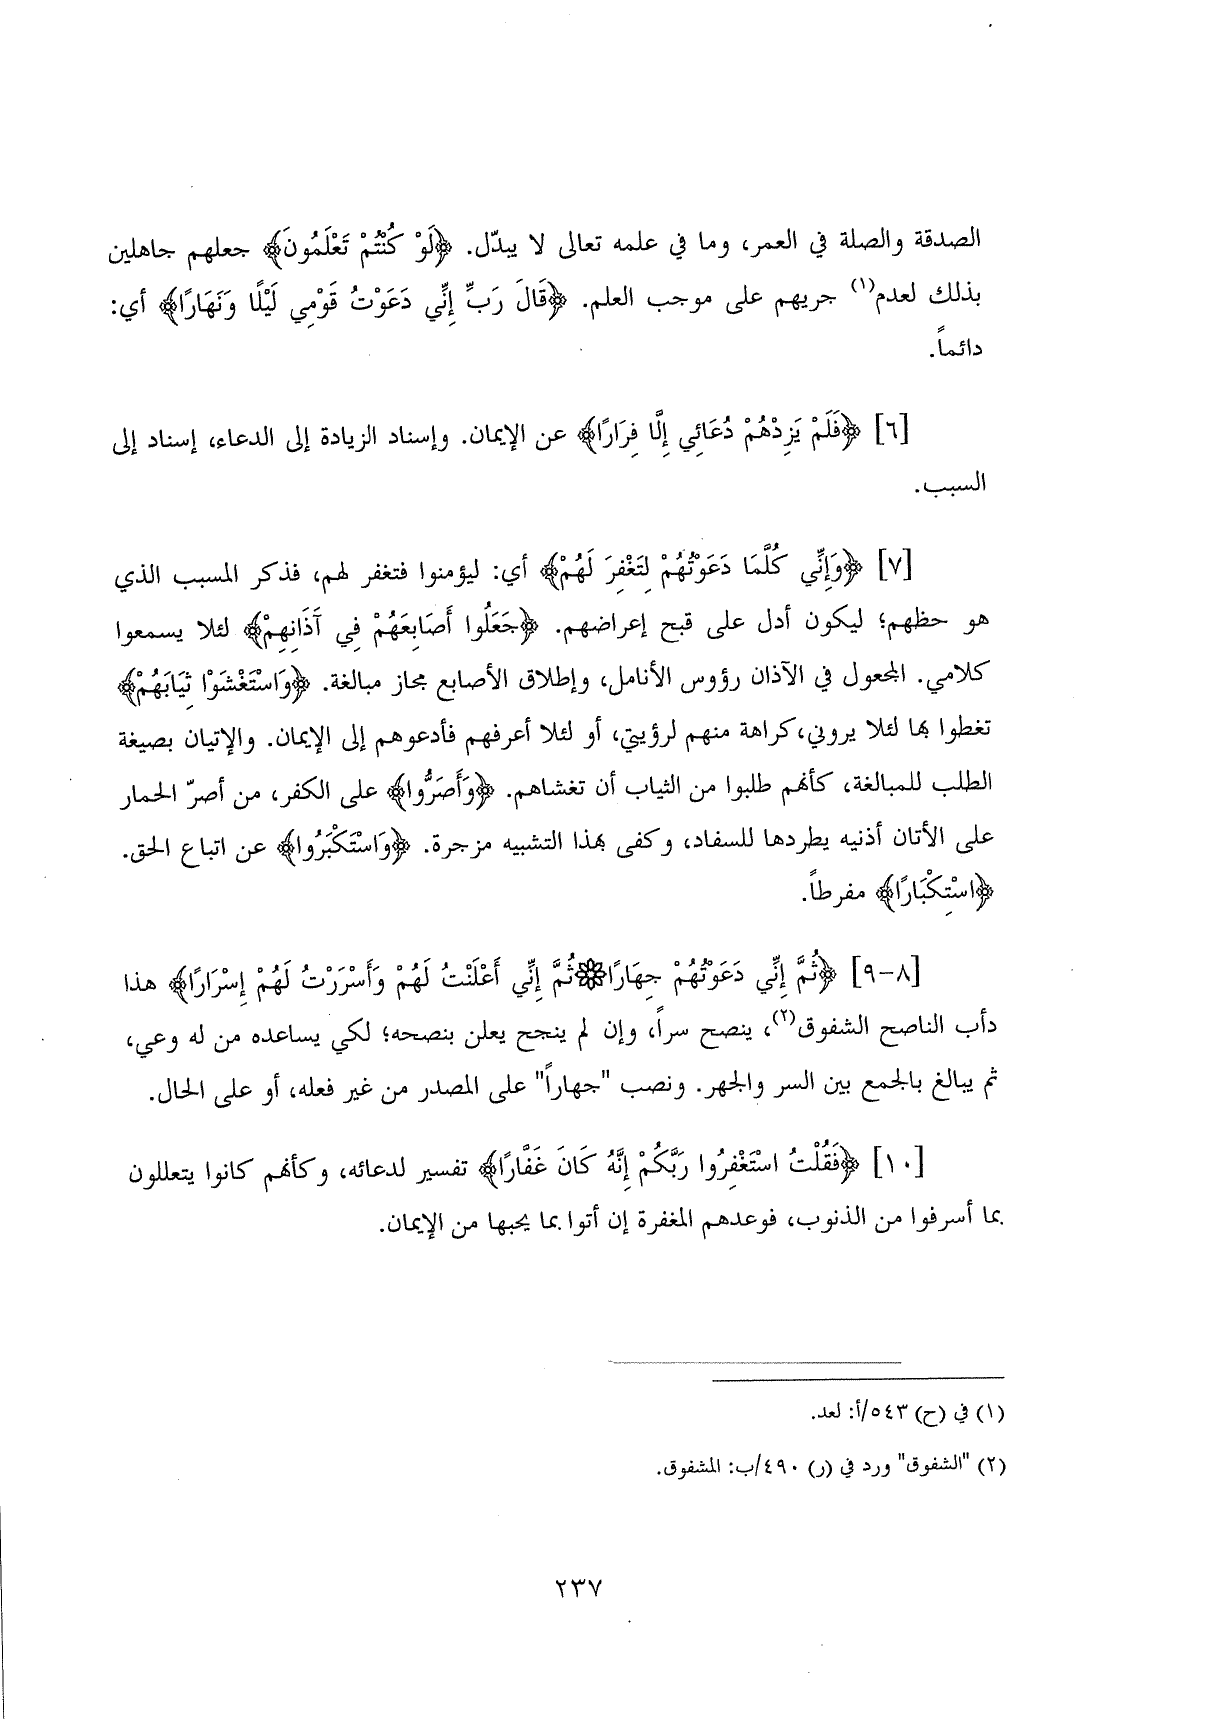 الصدقة والصلة في العمر، وما في علمه تعالى لا يبدّل. ﴿لَوْ كُنْتُمْ تَعْلَمُونَ﴾ جعلهم جاهلين
بذلك لعدم(١) جريهم على موجب العلم. ﴿قَالَ رَبِّ إِنِّي دَعَوْتُ قَوْمِي لَيْلًا وَنَهَارًا﴾ أي:
دائماً.
[٦] ﴿فَلَمْ يَزِدْهُمْ دُعَائِي إِلَّا فِرَارًا﴾ عن الإيمان. وإسناد الزيادة إلى الدعاء، إسناد إلى
السبب.
[٧] ﴿وَإِنِّي كُلَّمَا دَعَوْتُهُمْ لِتَغْفِرَ لَهُمْ﴾ أي: ليؤمنوا فتغفر لهم، فذكر المسبب الذي
هو حظهم؛ ليكون أدل على قبح إعراضهم. ﴿جَعَلُوا أَصَابِعَهُمْ فِي آذَانِهِمْ﴾ لئلا يسمعوا
كلامي. المجعول في الآذان رؤوس الأنامل، وإطلاق الأصابع مجاز مبالغة. ﴿وَاسْتَغْشَوْا ثِيَابَهُمْ﴾
تغطوا بها لئلا يروني،كراهة منهم لرؤيتي، أو لئلا أعرفهم فأدعوهم إلى الإيمان. والإتيان بصيغة
الطلب للمبالغة، كأنهم طلبوا من الثياب أن تغشاهم. ﴿وَأَصَرُّوا﴾ على الكفر، من أصرّ الحمار
على الأتان أذنيه يطردها للسفاد، وكفى بهذا التشبيه مزجرة. ﴿وَاسْتَكْبَرُوا﴾ عن اتباع الحق.
﴿اسْتِكْبَارًا﴾ مفرطاً.
[٨-٩] ﴿ثُمَّ إِنِّي دَعَوْتُهُمْ جِهَارًا۞ثُمَّ إِنِّي أَعْلَنْتُ لَهُمْ وَأَسْرَرْتُ لَهُمْ إِسْرَارًا﴾ هذا
دأب الناصح الشفوق(٢)، ينصح سراً، وإن لم ينجح يعلن بنصحه؛ لكي يساعده من له وعي،
ثم يبالغ بالجمع بين السر والجهر. ونصب "جهاراً" على المصدر من غير فعله، أو على الحال.
[١٠] ﴿فَقُلْتُ اسْتَغْفِرُوا رَبَّكُمْ إِنَّهُ كَانَ غَفَّارًا﴾ تفسير لدعائه، وكأنهم كانوا يتعللون
بما أسرفوا من الذنوب، فوعدهم المغفرة إن أتوا بما يحبها من الإيمان.
(١) في (ح) ٥٤٣/أ: لعد.
(٢) "الشفوق" ورد في (ر) ٤٩٠/ب: المشفوق.
٢٣٧